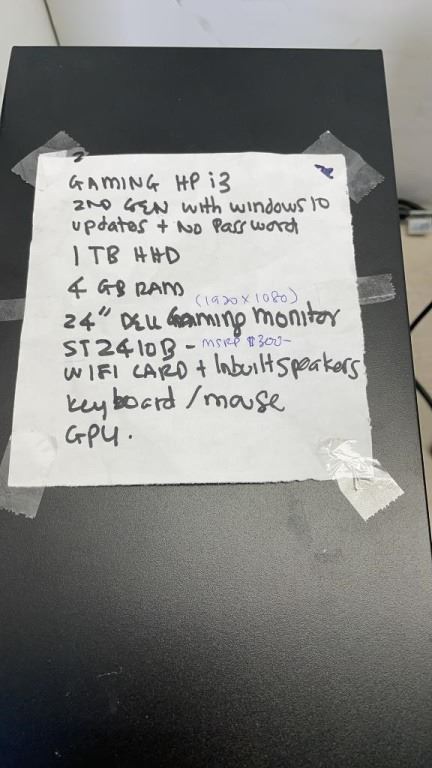 GAMING HP i3
2ND GEN with windows 10
updates + No Password
1 TB HHD
4 GB RAM
(1920 x 1080)
24" DELL Gaming monitor
ST2410B - MSRP $300-
WIFI CARD + Inbuilt speakers
keyboard / mouse
GPU.